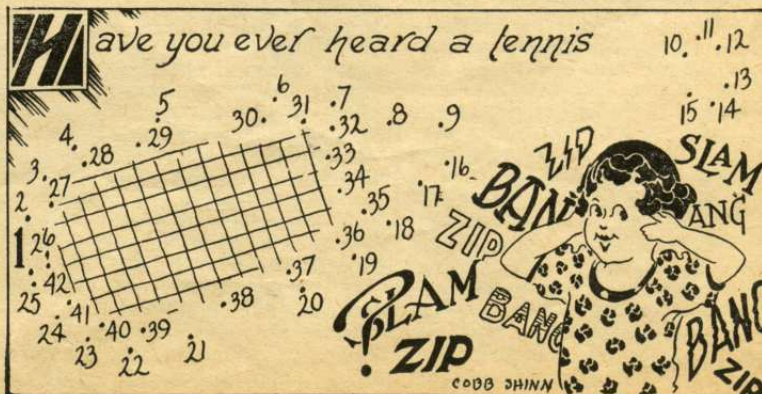 Have you ever heard a tennis
10 11 12
13
15 14
6
5 30 31 7
4 29 32 8 9
3 28 33
2 27 34 16
1 26 35 17
42 36 18
25 37 19
24 41 38 20
23 40 39
22 21
ZIP
SLAM
BANG
ANG
ZIP
SLAM
BANG
?
ZIP
BANG
ZIP
COBB SHINN